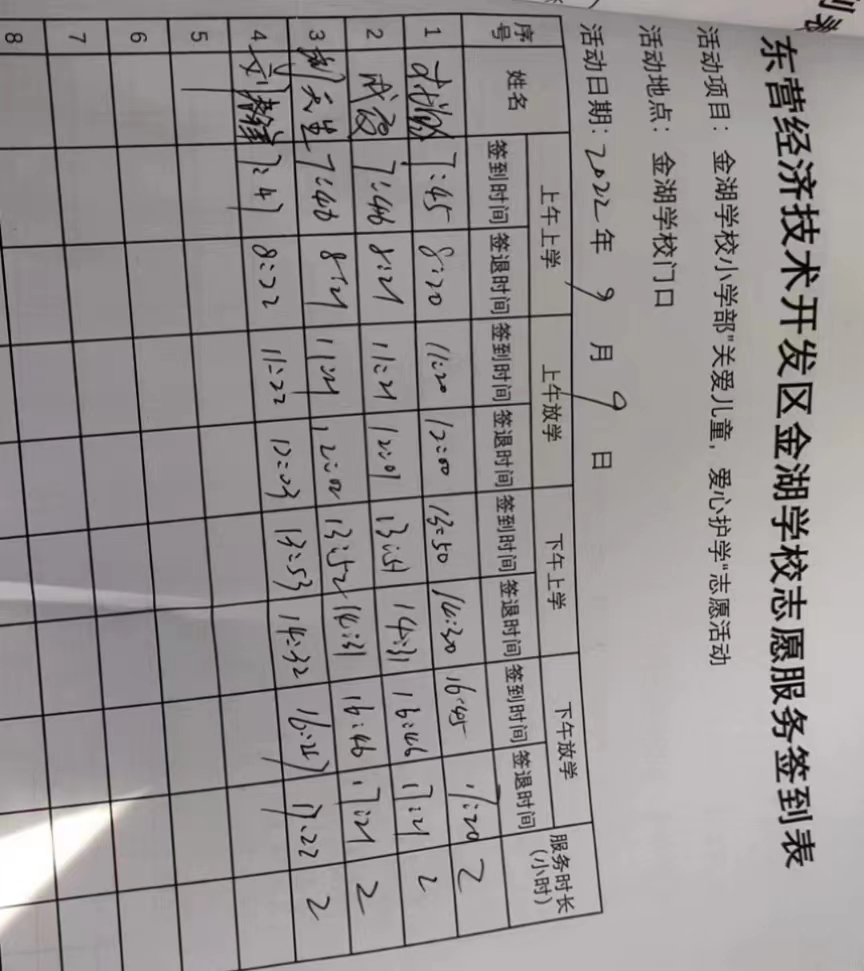 东营经济技术开发区金湖学校志愿服务签到表
活动项目：金湖学校小学部"关爱儿童，爱心护学"志愿活动
活动地点：金湖学校门口
活动日期：2022年9月9日
序号 姓名 上午上学 上午放学 下午上学 下午放学 服务时长（小时）
签到时间 签退时间 签到时间 签退时间 签到时间 签退时间 签到时间 签退时间
1 7:45 8:20 11:20 12:00 13:50 14:30 16:45 17:20 2
2 7:46 8:21 11:21 12:01 13:51 14:31 16:46 17:21 2
3 7:46 8:21 11:21 13:52 14:31 16:46 17:21 2
4 7:47 8:22 11:22 12:03 13:53 14:32 17:22 2
5
6
7
8